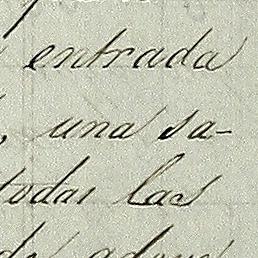 entrada
, una sa-
todas las